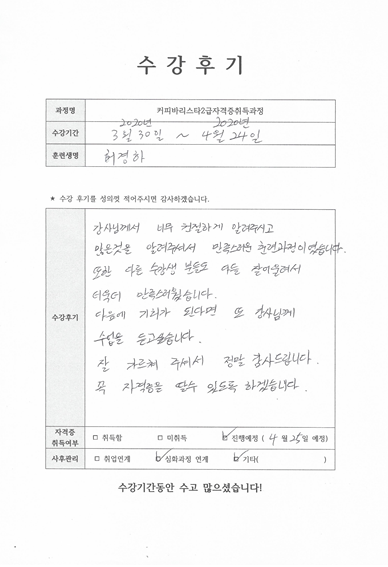 수 강 후 기
과정명 커피바리스타2급자격증취득과정
2020년 2020년
수강기간 3월 30일 ~ 4월 24일
훈련생명 허경하
★ 수강 후기를 성의껏 적어주시면 감사하겠습니다.
강사님께서 너무 친절하게 알려주시고
많은것을 알려주셔서 만족스러운 훈련과정이었습니다.
또한 다른 수강생 분들도 다들 잘어울려서
더욱더 만족스러웠습니다.
다음에 기회가 된다면 또 강사님께
수강후기
수업을 듣고싶습니다.
잘 가르쳐 주셔서 정말 감사드립니다.
꼭 자격증을 딸수 있도록 하겠습니다.
자격증
취득여부 □ 취득함 □ 미취득 ☑ 진행예정 ( 4 월 25일 예정)
사후관리 □ 취업연계 ☑ 심화과정 연계 ☑ 기타( )
수강기간동안 수고 많으셨습니다!